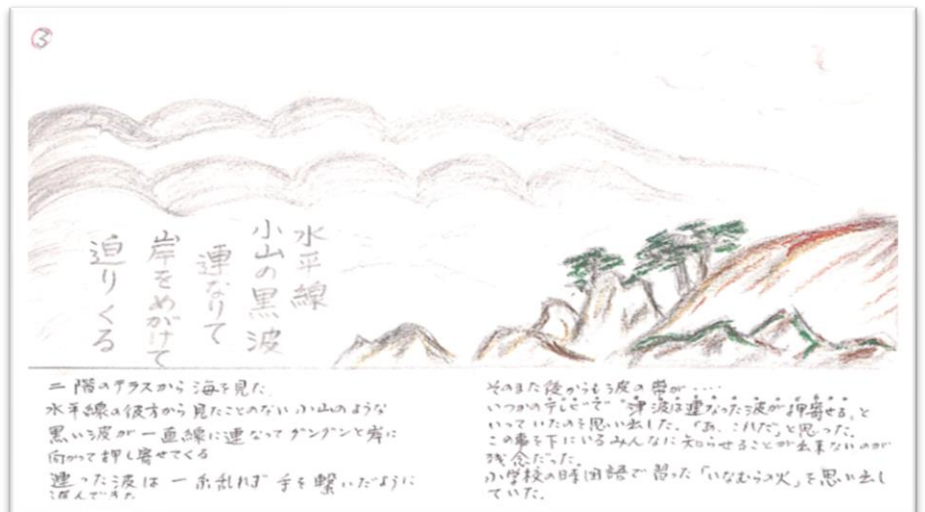 ③
水平線
小山の黒波
連なりて
岸をめがけて
迫りくる
二階のテラスから海を見た
水平線の彼方から見たことのない小山のような
黒い波が一直線に連なってグングンと岸に
向かって押し寄せてくる
連った波は一糸乱れず手を繋いだように
進んできた
そのまた後からも波の帯が‥‥
いつかのテレビで「津波は連なった波が押寄せる」と
いっていたのを思い出した。「あ、これだ」と思った。
この事を下にいるみんなに知らせることが出来ないのが
残念だった。
小学校の時国語で習った「いなむらの火」を思い出し
ていた。